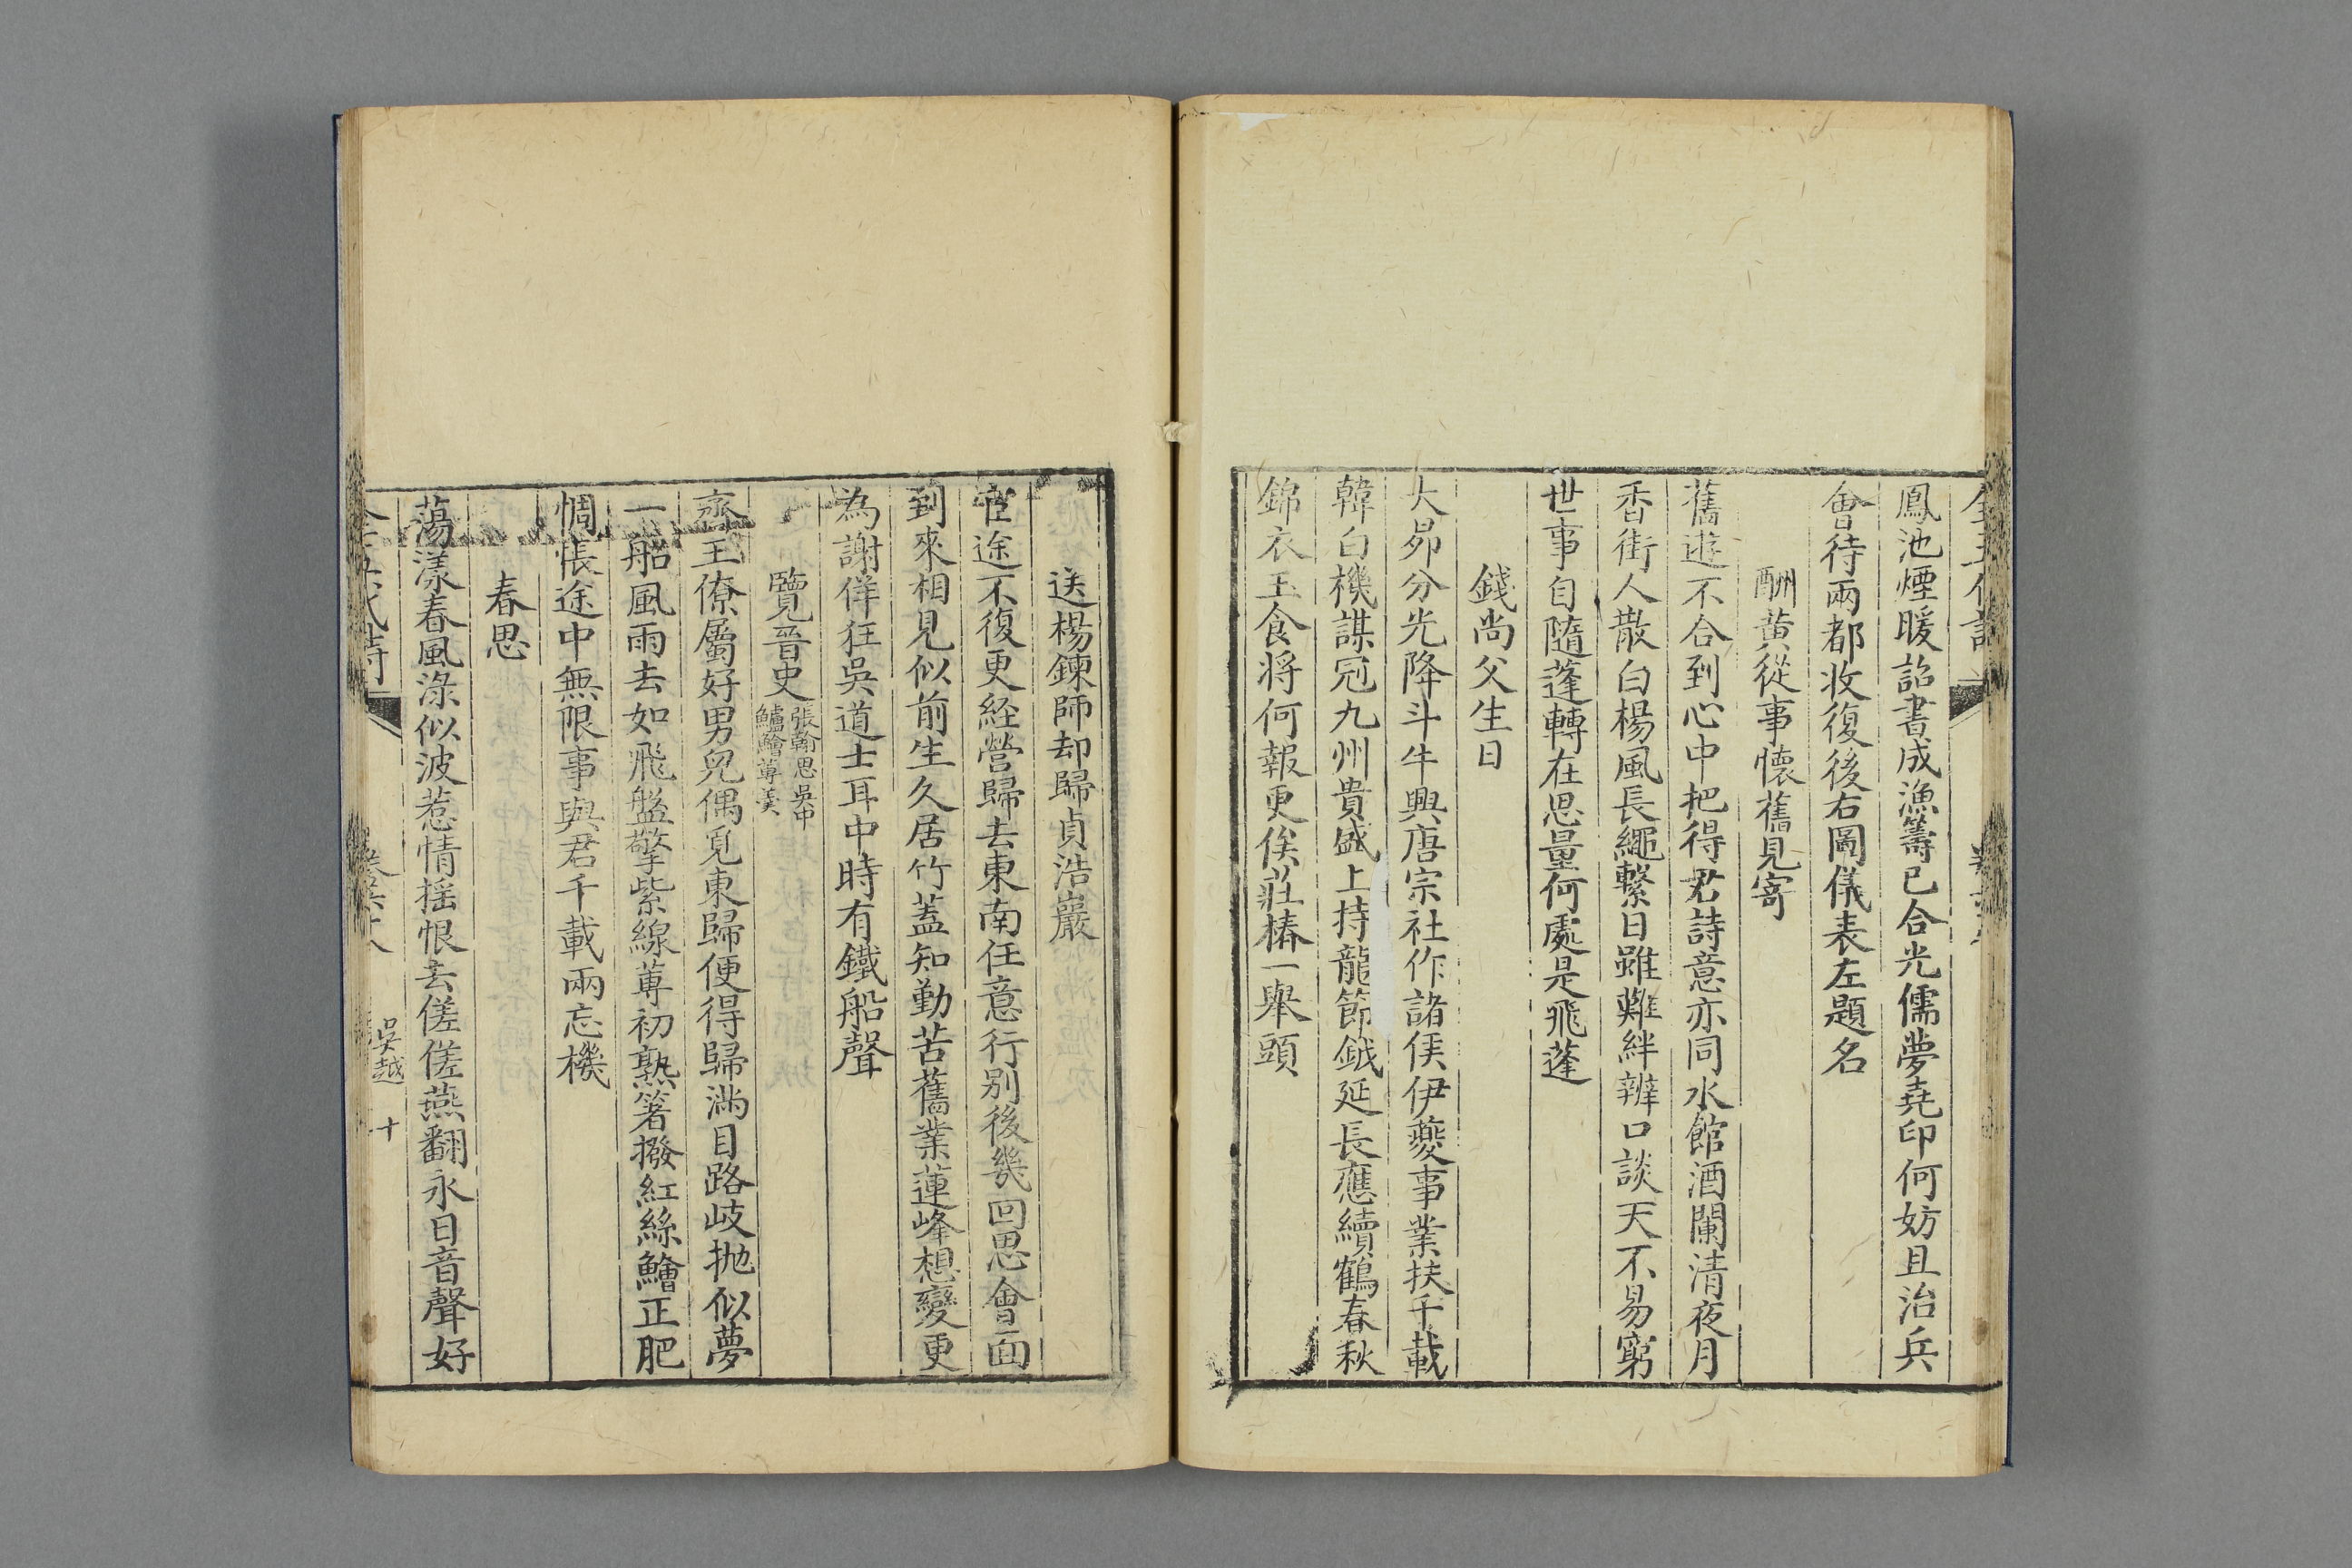 鳳池煙暖詔書成漁籌已合光儒夢堯印何妨且治兵
會待兩都收復後右圖儀表左題名
酬黄從事懷舊見寄
舊遊不合到心中把得君詩意亦同水館酒闌清夜月
香街人散白楊風長繩繫日雖難絆辨口談天不易窮
世事自隨蓬轉在思量何處是飛蓬
錢尚父生日
大昴分光降斗牛興唐宗社作諸侯伊夔事業扶千載
韓白機謀冠九州貴盛上持龍節鉞延長應續鶴春秋
錦衣玉食将何報更俟莊椿一舉頭
送楊鍊師却歸貞浩巖
宦途不復更経營歸去東南任意行别後幾回思會面
到來相見似前生久居竹蓋知勤苦舊業蓮峰想變更
為謝佯狂吳道士耳中時有鐵船聲
覽晋史
張翰思吳中
鱸鱠蓴羹
齊王僚屬好男兒偶覓東歸便得歸滿目路岐抛似夢
一船風雨去如飛盤擎紫線蓴初熟箸撥紅絲鱠正肥
惆悵途中無限事與君千載兩忘機
春思
蕩漾春風渌似波惹情揺恨去傞傞燕翻永日音聲好
吳越
十